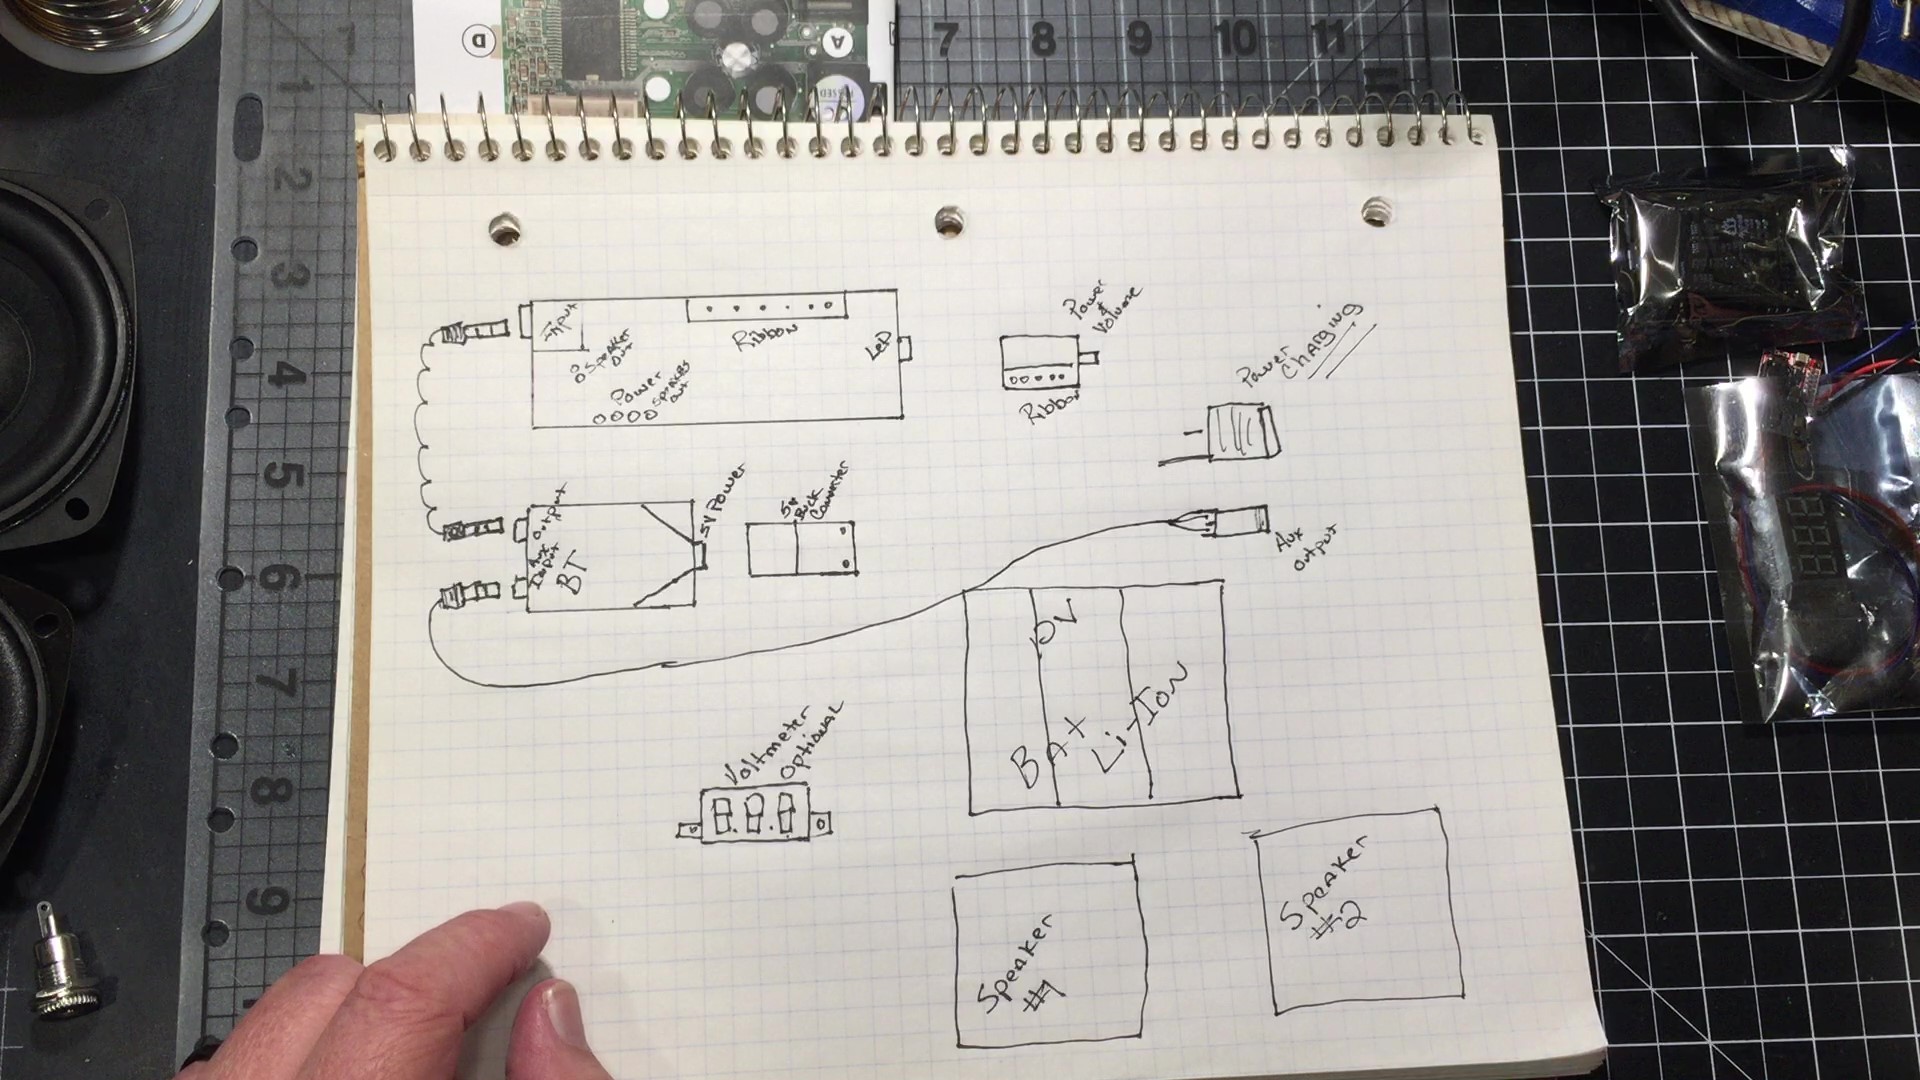 D
A
7 8 9 10 11
1
2
3
4
5
6
7
8
9
Input
Speaker
out
Ribbon
LED
Power
Speaker
out
Power
&
Volume
Ribbon
Power
Charging
Output
Aux
Input
BT
5V Power
5v
Buck
Converter
Aux
output
BAt
Li-Ion
Voltmeter
Optional
8.8.8
Speaker
#1
Speaker
#2